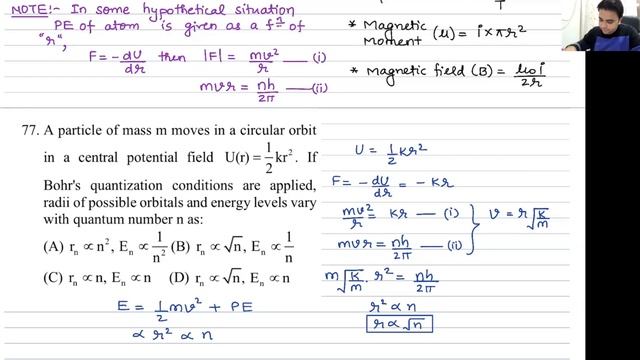 NOTE:- In some hypothetical situation
PE of atom is given as a fn of
"r",
F = -dU/dr then |F| = mv²/r —— (i)
mvr = nh/2π —— (ii)
T
* Magnetic Moment (μ) = i × πr²
* Magnetic field (B) = μ₀i/2r
77. A particle of mass m moves in a circular orbit
in a central potential field U(r) = 1/2 kr². If
Bohr's quantization conditions are applied,
radii of possible orbitals and energy levels vary
with quantum number n as:
(A) rₙ ∝ n², Eₙ ∝ 1/n² (B) rₙ ∝ √n, Eₙ ∝ 1/n
(C) rₙ ∝ n, Eₙ ∝ n (D) rₙ ∝ √n, Eₙ ∝ n
E = 1/2 mv² + PE
∝ r² ∝ n
U = 1/2 kr²
F = -dU/dr = -kr
mv²/r = kr —— (i)
mvr = nh/2π —— (ii)
v = r√(k/m)
m√(k/m) . r² = nh/2π
r² ∝ n
r ∝ √n